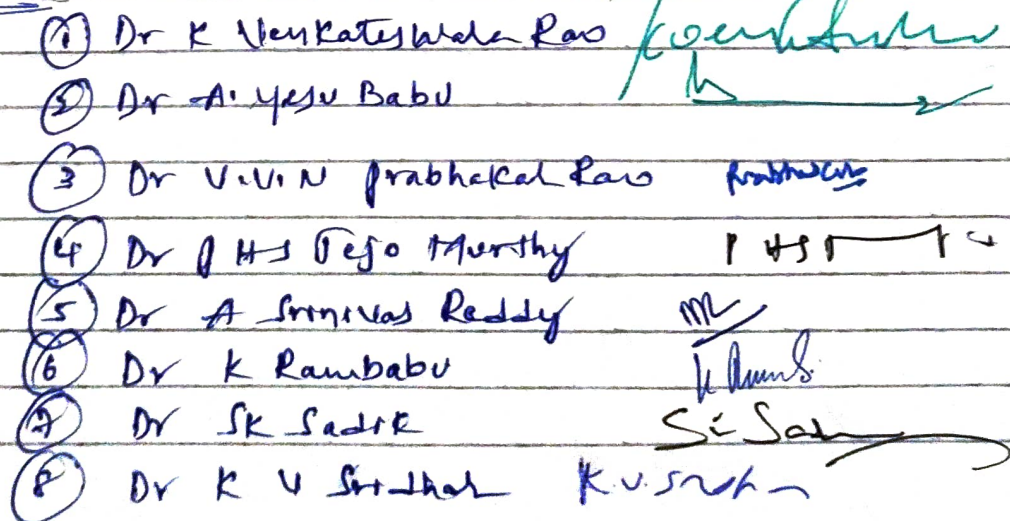 ① Dr K Venkateswala Rao
② Dr A. Yesu Babu
③ Dr V.V.N Prabhakar Rao Prabhakar
④ Dr P HS Tejo Murthy P HS
⑤ Dr A Srinivas Reddy
⑥ Dr K Rambabu
⑦ Dr SK Sadik
⑧ Dr K V Sridhar K.V.